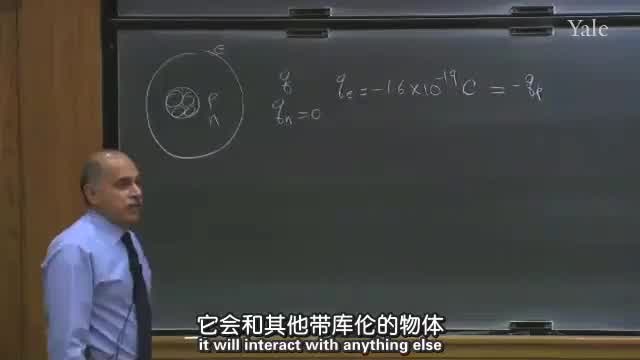 Yale
e
p
n
q
q_e = -1.6 × 10^-19 C = -q_p
q_n = 0
它会和其他带库伦的物体
it will interact with anything else